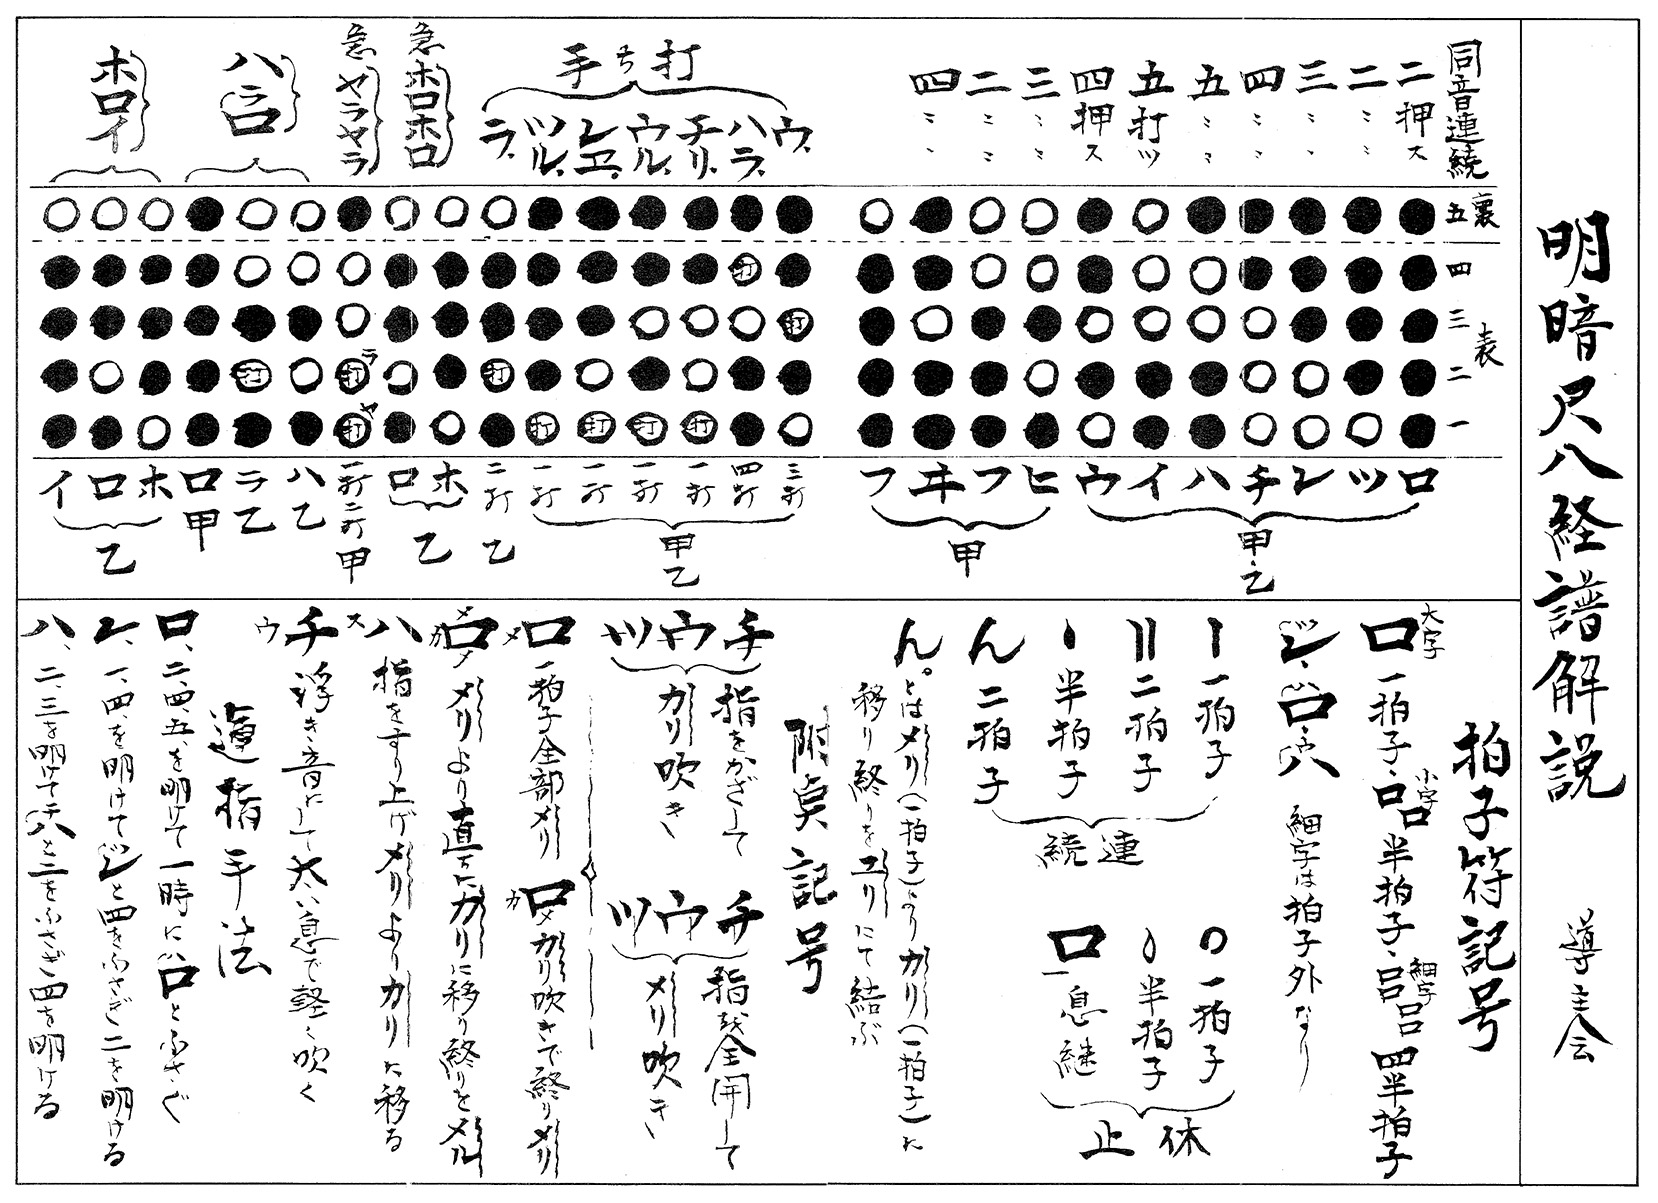 明暗尺八経譜解説　導主会
同音連続
二押ス
二〻〻
三〻〻
四〻〻
五〻〻
五打ツ
四押ス
三〻〻
二〻〻
四〻〻
打ち手
ウ、
ハラ、
チリ、
ウル、
レヱ、
ツル、
ラ、
急ホロホロ
急ヤラヤラ
ハラロ
ホロイ
裏　五
表　四　三　二　一
打
打
打
打
打
打
打
打ラ
打ヤ
打
ロ　ツ　レ　チ　ハ　イ　ウ
甲乙
ヒ　フ　ヰ　フ
甲
三打　四打　一打　一打　一打　一打
甲乙
二打　乙
ホ　ロ　乙
一打二打　甲
ハ乙
ラ乙
ロ甲
ホ　ロ　イ
乙
拍子符記号
大字
ロ　一拍子、小字ロロ半拍子、細字ロロロロ四半拍子
細字は拍子外なり
一拍子
二拍子
半拍子
ん　二拍子
連続
一拍子
半拍子
ロ　一息継
休止
ん。とはメリ(一拍子)よりカリ(一拍子)に
移り終りをユリにて結ぶ
附奌記号
チ　ウ　ツ
指をかざして
カリ吹き
チ　ウ　ツ
指を全開して
メリ吹き
ロメ　一拍子全部メリ　ロメカ　カリ吹きで終りメリ
ロメカメ　メリより直ちにカリに移り終りをメル
ハス　指をすり上げメリよりカリに移る
チウ　浮き音にして太い息で軽く吹く
運指手法
ロ、二、四、五、を明けて一時にロとふさぐ
レ、一、四、を明けてレと四をふさぎ二を明ける
ハ、二、三を明けてハと二をふさぎ四を明ける